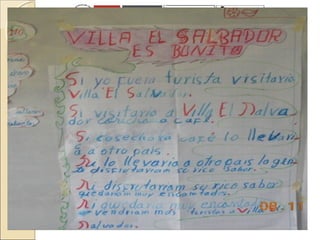 VILLA EL SALBADOR
ES BONITO
Si yo fuera turista visitaria
Villa El Salvador.
Si visitaria a Villa El Salva
dor
a cafe.
Si cosechara café lo llevari
a a otro pais.
Si lo llevaria a otro pais la gen
te discrutariam su rico sabor.
Si discrutariam su rico sabor
quedariam muy encantados.
Si quedaria muy encantados
vendriam más turistas a Villa El
Salvador.